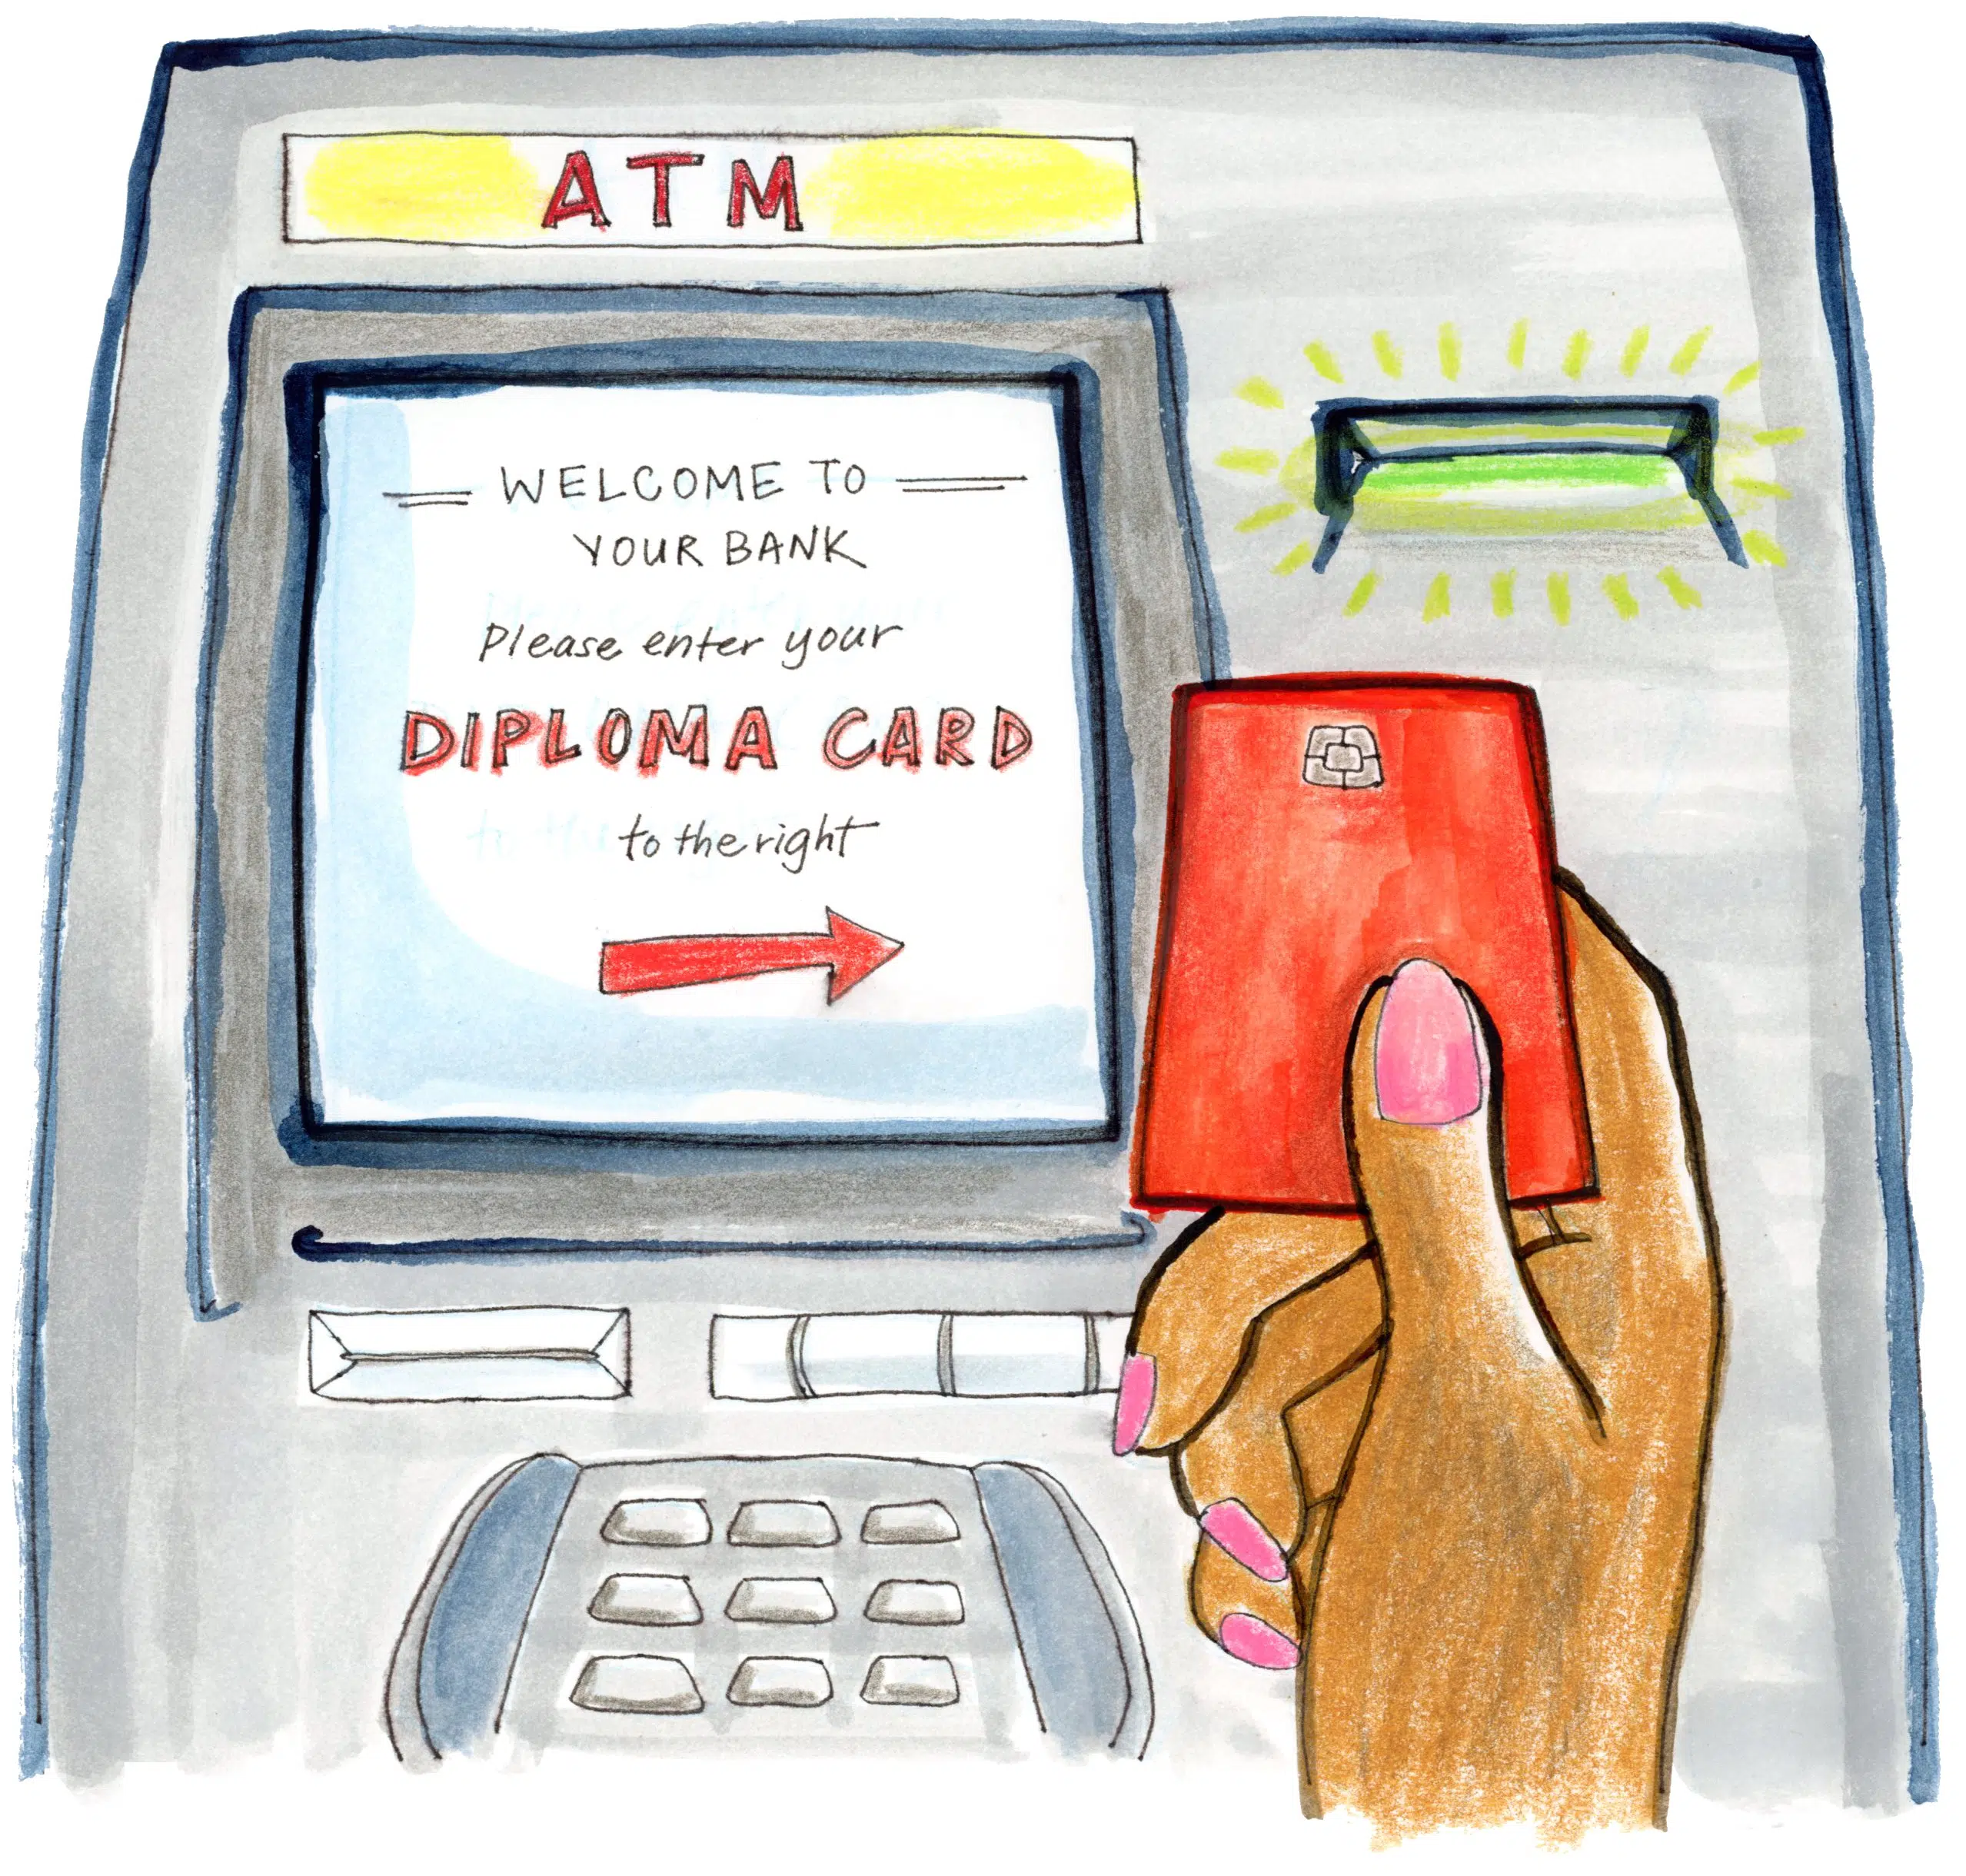 ATM
WELCOME TO
YOUR BANK
Please enter your
DIPLOMA CARD
to the right